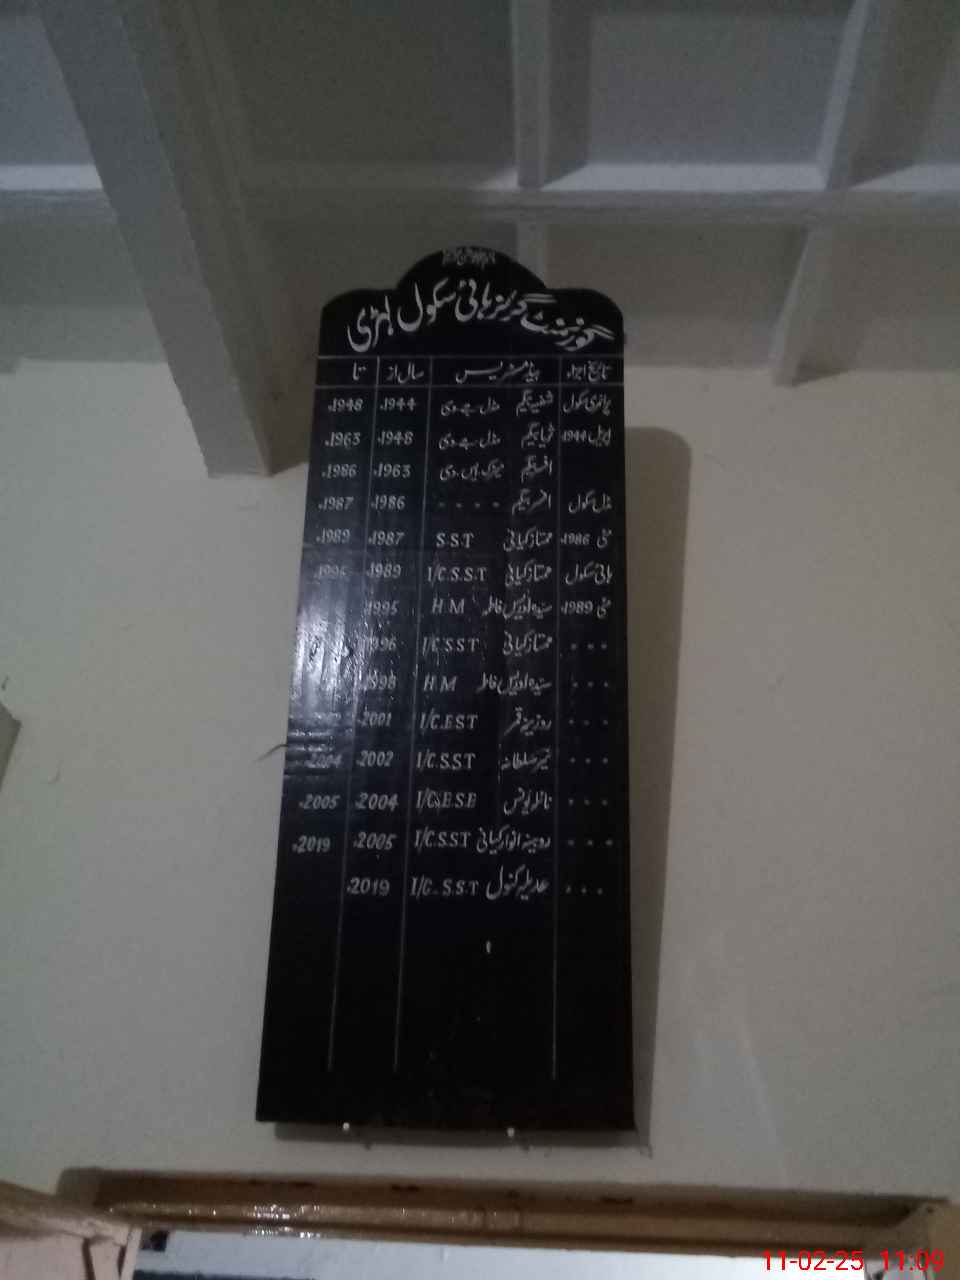 گورنمنٹ گرلز ہائی سکول لہڑی
تاریخ اجراء ہیڈمسٹریس سال از تا
پرائمری سکول شفیہ بیگم مڈل جے۔وی 1944ء 1948ء
اپریل 1944ء ثریا بیگم مڈل جے۔وی 1948ء 1963ء
افسر بیگم میٹرک۔ایس۔وی 1963ء 1986ء
مڈل سکول افسر بیگم - - - - 1986ء 1987ء
مئی 1986ء ممتاز کیانی S.S.T 1987ء 1989ء
ہائی سکول ممتاز کیانی I/C.S.S.T 1989ء
مئی 1989ء سیدہ ادریس فاطمہ H.M 1995ء
- - - ممتاز کیانی I/C.S.S.T 1996
- - - سیدہ ادریس فاطمہ H.M 1998
- - - روزینہ قمر I/C.E.S.T 2001ء
- - - سلطانہ I/C.S.S.T 2002ء 2004ء
- - - یونس I/C.E.S.E 2004ء 2005ء
- - - روبینہ انوار کیانی I/C.S.S.T 2005ء 2019ء
- - - عدیلہ کنول I/C.S.S.T 2019ء
11-02-25 11:09